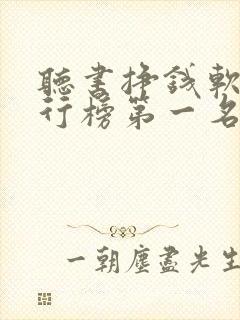 聽書掙錢軟
行榜第一名
一朝塵盡光生